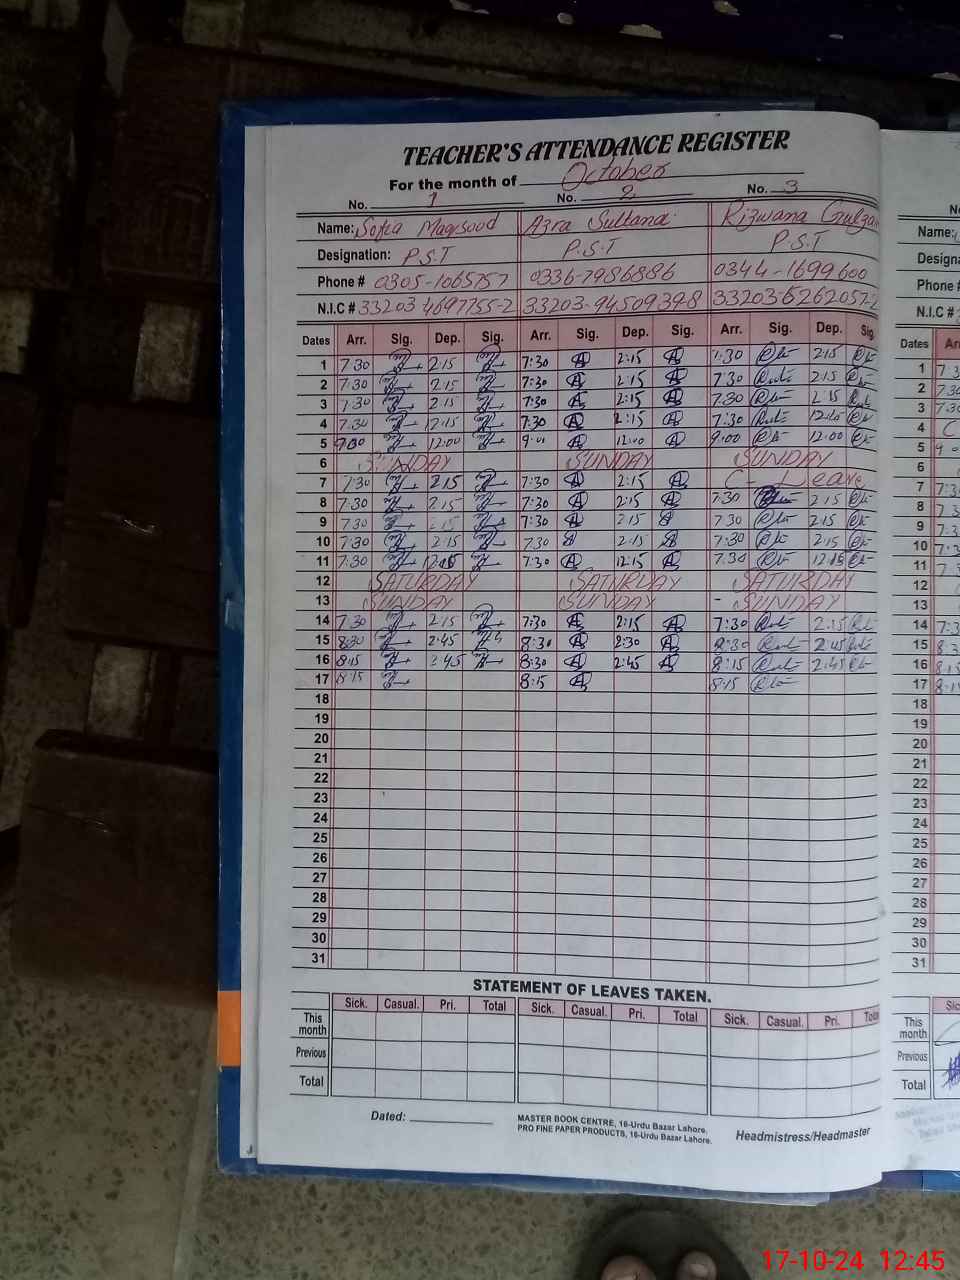 TEACHER'S ATTENDANCE REGISTER
For the month of October
No. 1 No. 2 No. 3
Name: Sofia Maqsood Azra Sultana Rizwana Gulzar
Designation: P.S.T P.S.T P.S.T
Phone # 0305-1065757 0336-7986886 0344-1699600
N.I.C # 33203 4697755-2 33203-94509398 33203-5262057-2
Dates Arr. Sig. Dep. Sig. Arr. Sig. Dep. Sig. Arr. Sig. Dep. Sig.
1 7:30 2:15 7:30 2:15 7:30 2:15
2 7:30 2:15 7:30 2:15 7:30 2:15
3 7:30 2:15 7:30 2:15 7:30 2:15
4 7:30 12:15 7:30 2:15 7:30
5 9:00 12:00 9:00 12:00 9:00 12:00
6 SUNDAY SUNDAY SUNDAY
7 7:30 2:15 7:30 2:15 C- Leave
8 7:30 2:15 7:30 2:15 7:30 2:15
9 7:30 2:15 7:30 2:15 7:30 2:15
10 7:30 2:15 7:30 2:15 7:30 2:15
11 7:30 12:15 7:30 12:15 7:30 12:15
12 SATURDAY SATURDAY SATURDAY
13 SUNDAY SUNDAY - SUNDAY
14 7:30 2:15 7:30 2:15 7:30 2:15
15 8:30 2:45 8:30 2:30 8:30 2:45
16 8:15 2:45 8:30 2:45 8:15 2:45
17 8:15 8:15 8:15
18
19
20
21
22
23
24
25
26
27
28
29
30
31
STATEMENT OF LEAVES TAKEN.
Sick. Casual. Pri. Total Sick. Casual. Pri. Total Sick. Casual. Pri. Total
This month
Previous
Total
Dated:
MASTER BOOK CENTRE, 16-Urdu Bazar Lahore.
PRO FINE PAPER PRODUCTS, 16-Urdu Bazar Lahore.
Headmistress/Headmaster
Name:
Phone #
N.I.C #
Dates
1
2
3
4
5
6
7
8
9
10
11
12
13
14
15
16
17
18
19
20
21
22
23
24
25
26
27
28
29
30
31
This month
Previous
Total
17-10-24 12:45